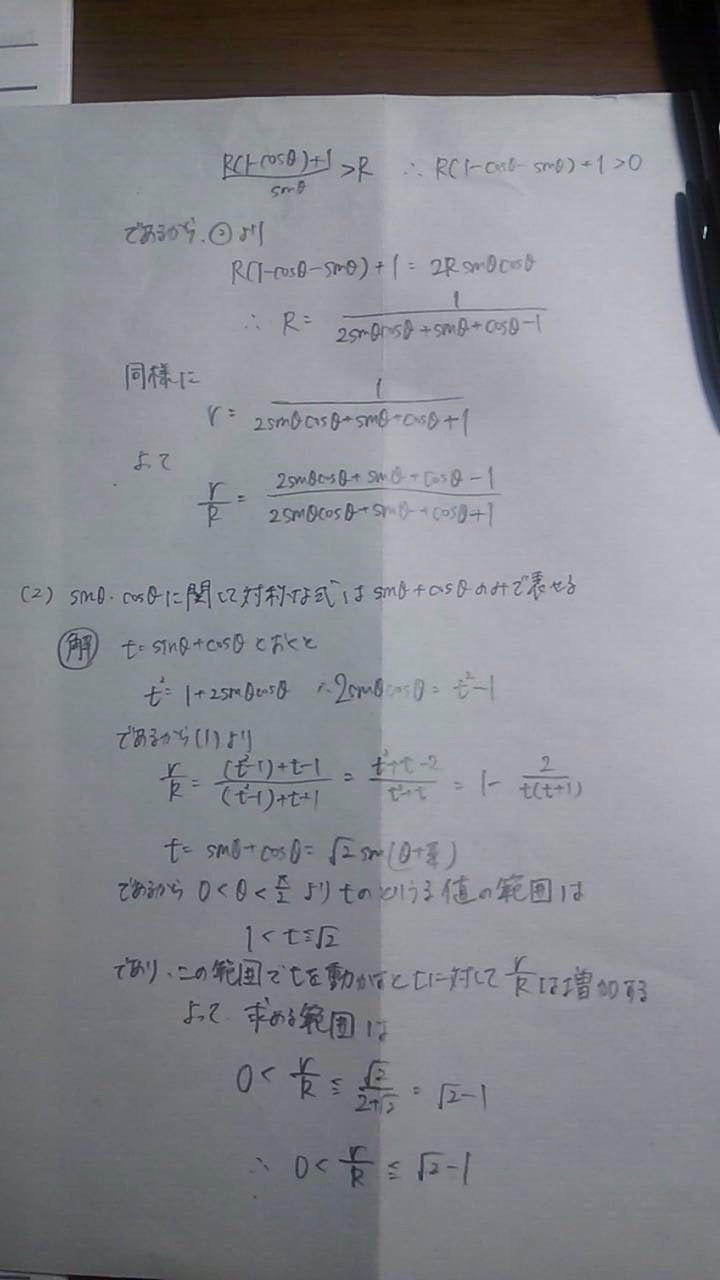 R(1-cosθ)+1 / sinθ > R ∴ R(1-cosθ-sinθ)+1>0
であるから、②より
R(1-cosθ-sinθ)+1 = 2Rsinθcosθ
∴ R = 1 / 2sinθcosθ+sinθ+cosθ-1
同様に
r = 1 / 2sinθcosθ+sinθ+cosθ+1
よって
r/R = 2sinθcosθ+sinθ+cosθ-1 / 2sinθcosθ+sinθ+cosθ+1
(2) sinθ・cosθに関して対称な式は sinθ+cosθのみで表せる
解 t=sinθ+cosθとおくと
t²=1+2sinθcosθ ∴2sinθcosθ=t²-1
であるから(1)より
r/R = (t²-1)+t-1 / (t²-1)+t+1 = t²+t-2 / t²+t = 1- 2 / t(t+1)
t= sinθ+cosθ= √2 sin(θ+π/4)
であるから 0<θ<π/2 より tのとりうる値の範囲は
1<t≦√2
であり、この範囲でtを動かすとtに対して r/R は増加する
よって 求める範囲は
0< r/R ≦ √2 / 2+√2 = √2-1
∴ 0< r/R ≦ √2-1